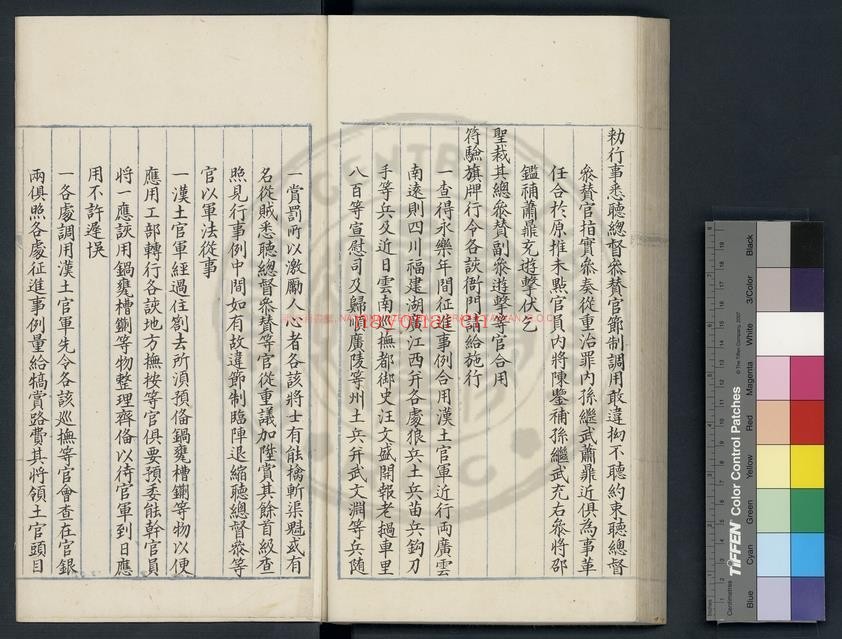 勑行事悉聽總督叅賛官節制調用敢違拗不聽約束聽總督
叅賛官指實叅奏從重治罪內孫繼武蕭鼐近俱為事革
任合於原推未㸃官員內將陳鑒補孫繼武充右叅將邵
鑑補蕭鼐充遊擊伏乞
聖裁其總叅賛副叅遊擊等官合用
符驗旗牌行令各該衙門請給施行
一查得永樂年間征進事例合用漢土官軍近行兩廣雲
南遠則四川福建湖廣江西并各處狼兵土兵苗兵鈎刀
手等兵及近日雲南廵撫都御史汪文盛開報老撾車里
八百等宣慰司及歸順廣陵等州土兵并武文淵等兵随
一賞罰所以激勵人心者各該將士有能擒斬渠魁或有
名從賊悉聽總督叅賛等官從重議加陞賞其餘首級查
照見行事例中間如有故違節制臨陣退縮聽總督叅等
官以軍法從事
一漢土官軍經過住劄去所湏預俻鍋甕槽鍘等物以便
應用工部轉行各該地方撫按等官俱要預委能幹官員
將一應該用鍋甕槽鍘等物整理齊俻以待官軍到日應
用不許遲悞
一各處調用漢土官軍先令各該巡撫等官會查在官銀
兩俱照各處征進事例量給犒賞路費其將領土官頭目
nayona.cn
TIFFEN Color Control Patches
© The Tiffen Company, 2007
Centimetres
Inches
Blue
Cyan
Green
Yellow
Red
Magenta
White
3/Color
Black